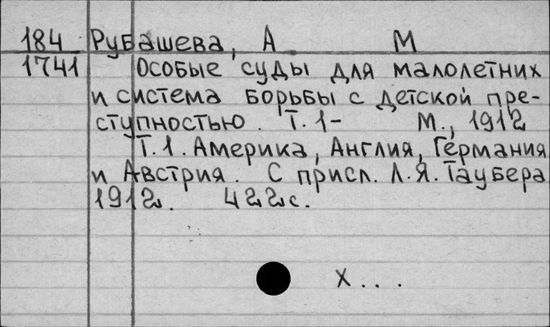 184 Рубашева, А М
1741 Особые суды для малолетних
и система борьбы с детской пре-
ступностью. Т. 1- М., 1912
Т. 1. Америка, Англия, Германия
и Австрия. С присл. Л. Я. Таубера
1912. 422 с.
Х...